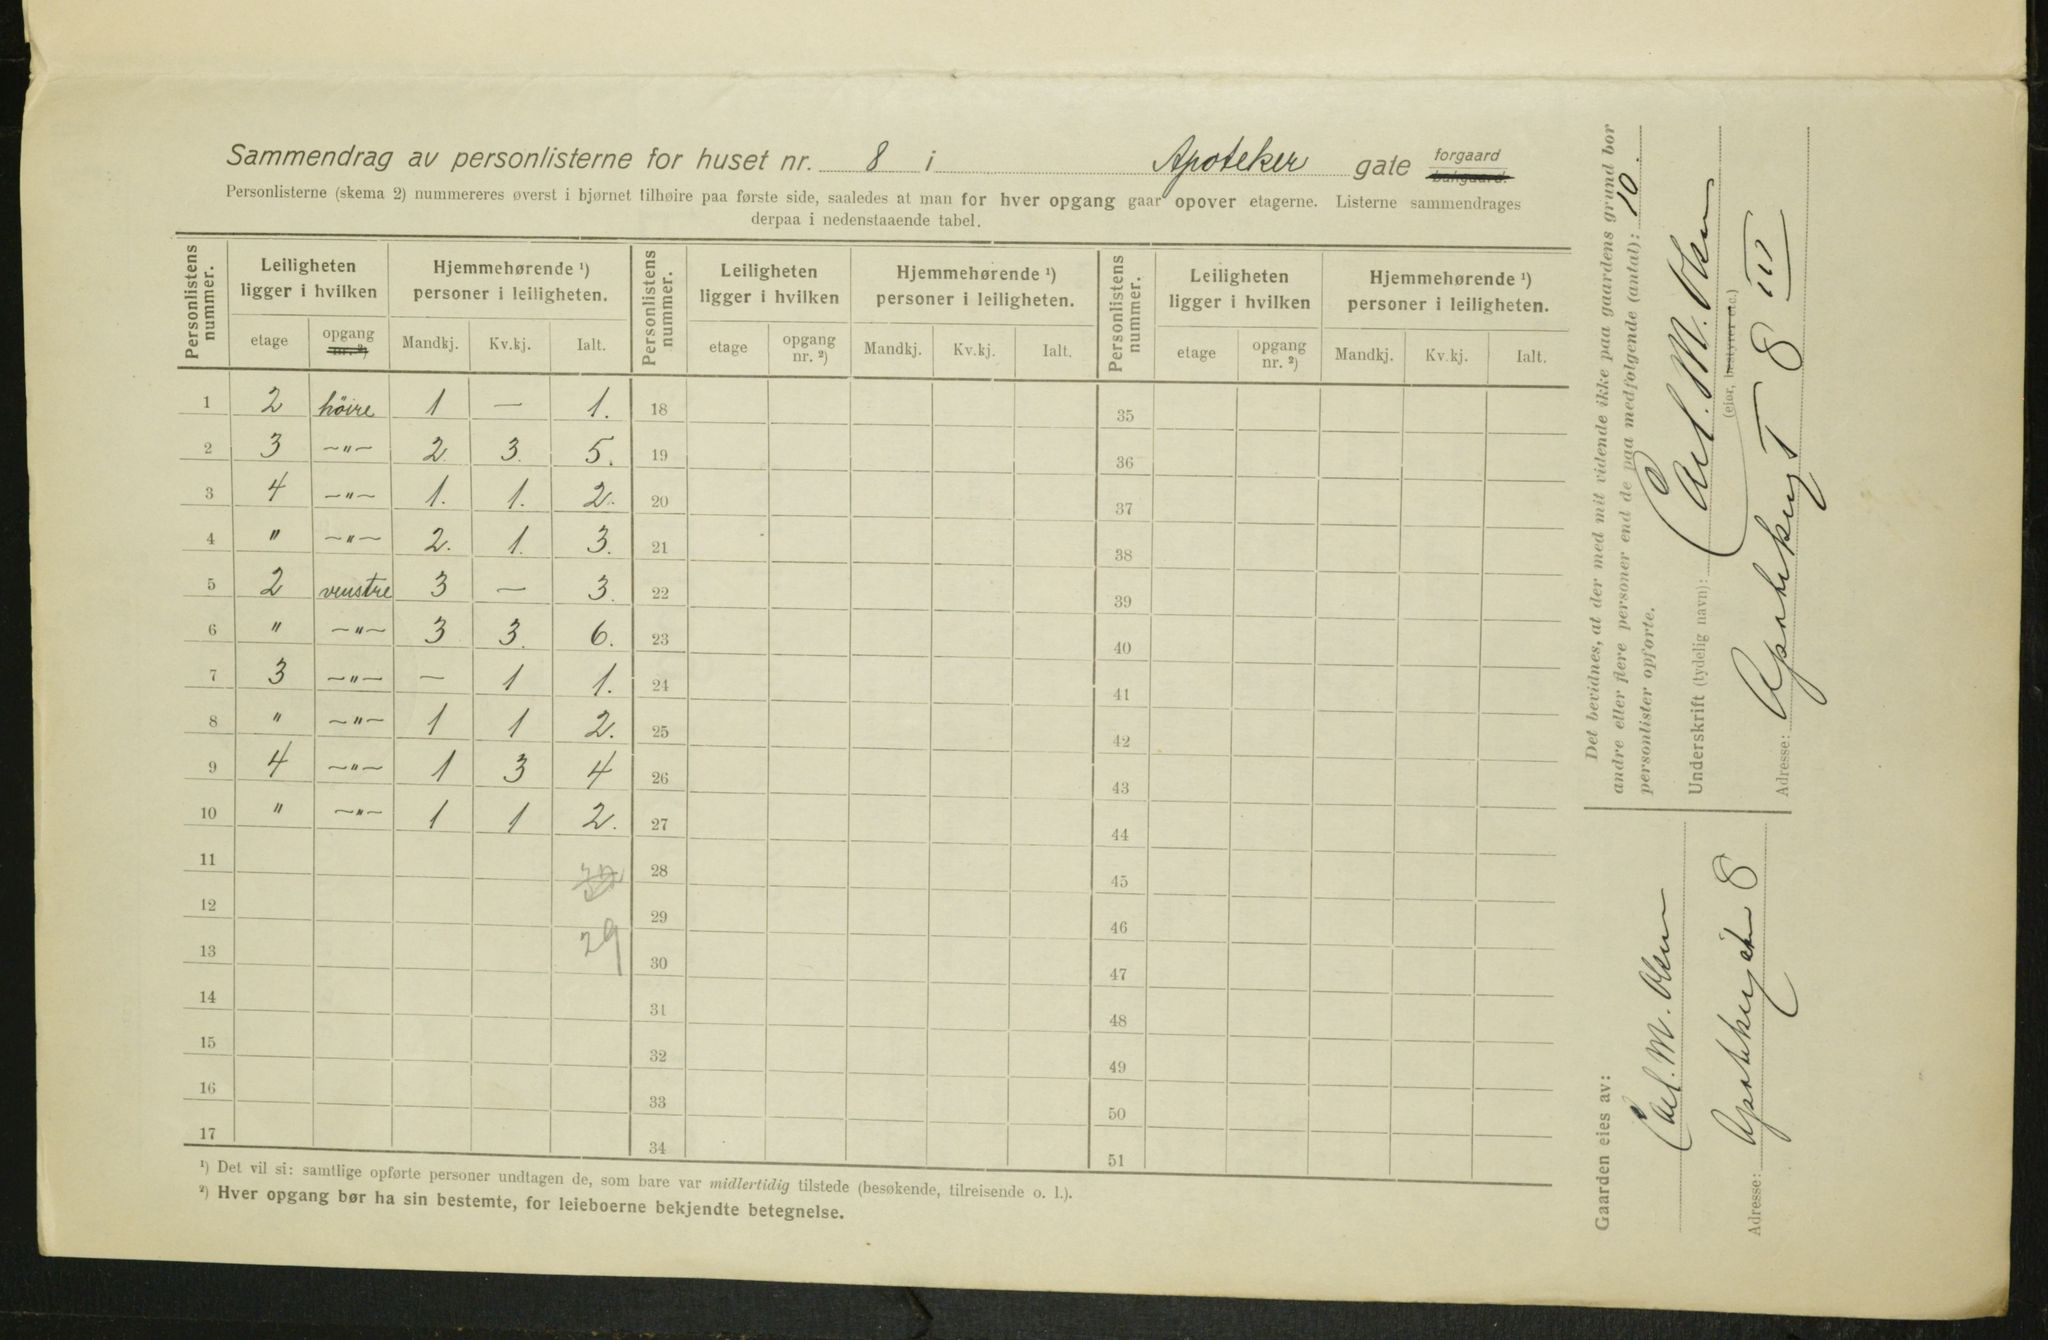 Sammendrag av personlisterne for huset nr. 8 i Apoteker gate forgaard bakgaard.
Personlisterne (skema 2) nummereres øverst i hjørnet tilhøire paa første side, saaledes at man for hver opgang gaar opover etagerne. Listerne sammendrages
derpaa i nedenstaaende tabel.
Personlistens nummer. Leiligheten ligger i hvilken Hjemmehørende ¹) personer i leiligheten. Personlistens nummer. Leiligheten ligger i hvilken Hjemmehørende ¹) personer i leiligheten. Personlistens nummer. Leiligheten ligger i hvilken Hjemmehørende ¹) personer i leiligheten.
etage opgang nr. ²) Mandkj. Kv.kj. Ialt. etage opgang nr. ²) Mandkj. Kv.kj. Ialt. etage opgang nr. ²) Mandkj. Kv.kj. Ialt.
1 2 höire 1 — 1. 18 35
2 3 —"— 2. 3. 5. 19 36
3 4 —"— 1. 1. 2. 20 37
4 " —"— 2. 1. 3. 21 38
5 2 venstre 3 — 3. 22 39
6 " —"— 3 3. 6. 23 40
7 3 —"— — 1 1. 24 41
8 " —"— 1 1 2. 25 42
9 4 —"— 1 3 4 26 43
10 " —"— 1 1 2. 27 44
11 28 45
12 29 46
13 29 30 47
14 31 48
15 32 49
16 33 50
17 34 51
¹) Det vil si: samtlige opførte personer undtagen de, som bare var midlertidig tilstede (besøkende, tilreisende o. l.).
²) Hver opgang bør ha sin bestemte, for leieboerne bekjendte betegnelse.
Det bevidnes, at der med mit vidende ikke paa gaardens grund bor
andre eller flere personer end de paa medfølgende (antal): 10.
personlister opførte.
Underskrift (tydelig navn): Carl. M. Olsen
(eier, bestyrer etc.)
Adresse: Apotekergt 8 III
Gaarden eies av:
Carl. M. Olsen
Adresse: Apotekergaten 8